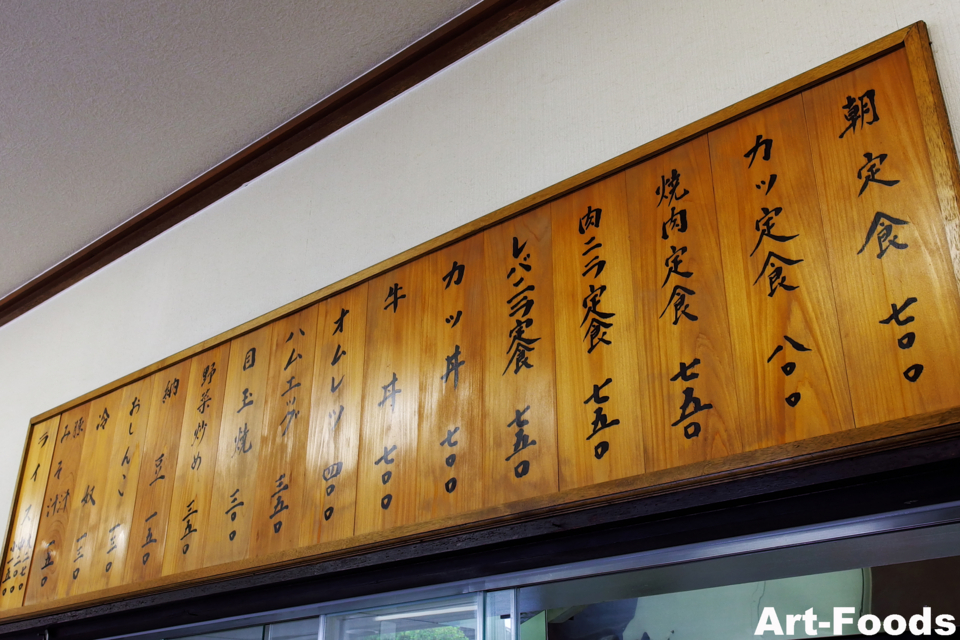 朝定食 七〇〇
カツ定食 八〇〇
焼肉定食 七五〇
肉ニラ定食 七五〇
レバニラ定食 七五〇
カツ丼 七〇〇
牛丼 七〇〇
オムレツ 四〇〇
ハムエッグ 三五〇
目玉焼 三〇〇
野菜炒め 三五〇
納豆 一五〇
おしんこ
冷奴
豚みそ汁 一五〇
ライス
Art-Foods